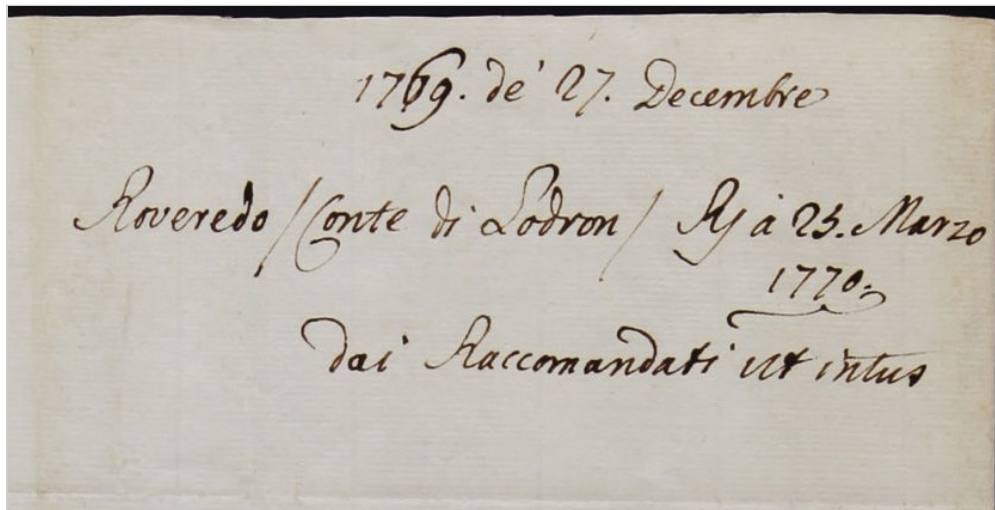 1769. de' 27. Decembre
Roveredo / Conte di Lodron / Rp à 25. Marzo
1770.
dai Raccomandati ut intus